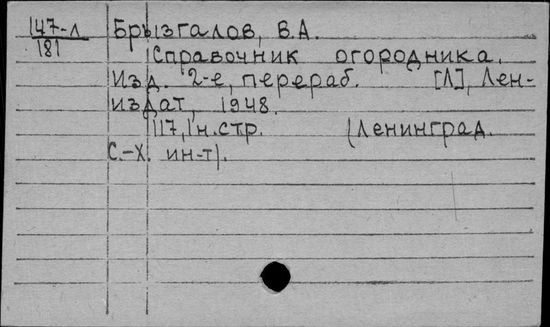 147-л Брызгалов, В.А.
181
Справочник огородника.
Изд. 2-е, перераб. [Л], Лен-
издат, 1948.
117,1 н.стр. (Ленинград.
с.-х. ин-т).